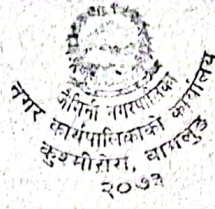 जैमिनी नगरपालिका
नगर कार्यपालिकाको कार्यालय
कुश्मीशेरा, बागलुङ
२०७३